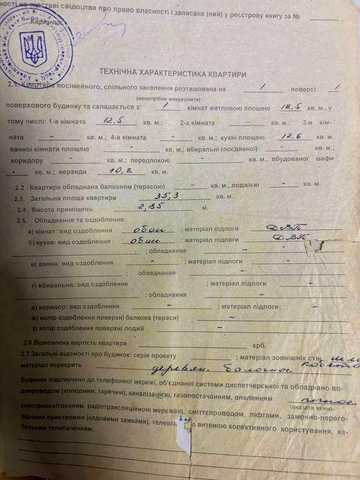 ності на підставі свідоцтва про право власності і записана (ний) у реєстрову книгу за №
ТЕХНІЧНА ХАРАКТЕРИСТИКА КВАРТИРИ
2.1. Квартира посімейного, спільного заселення розташована на 1 поверсі 1
(непотрібне викреслити)
поверхового будинку та складається з: 1 кімнат житловою площею 12,5 кв. м., у
тому числі: 1-а кімната 12,5 кв. м.; 2-а кімната - кв. м.; 3-я кім-
ната - кв. м.; 4-а кімната - кв. м.; кухні площею 12,6 кв. м.
ванної кімнати площею - кв. м., вбиральні (поєднаної) - кв. м.,
коридору - кв. м.; передпокою - кв. м.; вбудованої шафи
- кв. м.; веранди 10,2 кв. м.
2.2. Квартира обладнана балконом (терасою) - кв. м., лоджією - кв. м.
2.3. Загальна площа квартири 35,3 кв. м.
2.4. Висота приміщень 2,35 м.
2.5. Обладнання та оздоблення:
а) кімнат: вид оздоблення обои ; матеріал підлоги ДВП
б) кухні: вид оздоблення обои ; матеріал підлоги ДВП
; обладнання -
в) ванни: вид оздоблення - ; матеріал підлоги -
; обладнання -
г) вбиральні: вид оздоблення - ; матеріал підлоги -
; обладнання -
д) коридору: вид оздоблення - ; матеріал підлоги -
е) колір оздоблення поверхні балкона (тераси) -
є) колір оздоблення поверхні лоджії -
2.6. Відновлена вартість квартири крб.
2.7. Загальні відомості про будинок: серія проекту - ; матеріал зовнішніх стін
матеріал перекрить деревян.
Будинок підключено до телефонної мережі, об'єднаної системи диспетчерської та обладнано во-
допроводом (холодним, гарячим), каналізацією, газопостачанням, опаленням печное
електроопаленням, радіотрансляційною мережею, сміттєпроводом, ліфтами, замочно-перего-
ворними пристроями (кодовими замками), антеною колективного користування, ка-
бельним телебаченням.